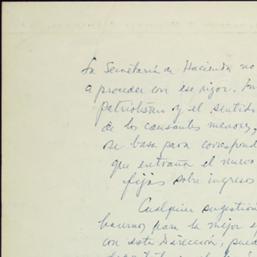 La Secretaría de Hacienda no
a proceder con ese rigor. En
patriotismo y el sentido
de los causantes menores,
se basa para correspond
que entraña el nuevo
fijas sobre ingresos
Cualquier sugestión
hacernos para la mejor
con esta Dirección, pued